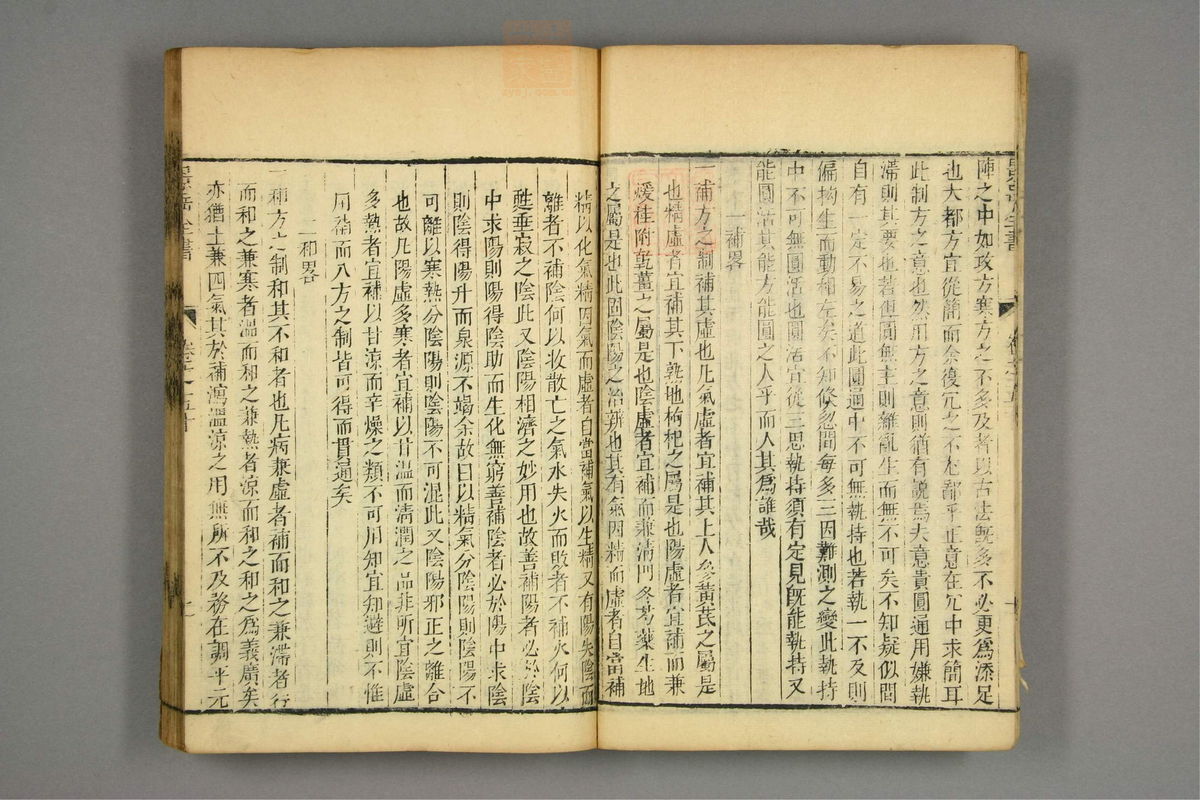 陣之中如攻方寒方之不多及者以古法旣多不必更爲添足
也大都方宜從簡而余復冗之不
此制方之意也然用方之意則猶有說焉夫意貴圓通用嫌執
滯則其要也若但圓無主則雜亂生而無不可矣不知疑似間
自有一定不易之道此圓通中不可無執持也若執一不反則
偏拘生而動相左矣不知倏忽間每多三因難測之變此執持
中不可無圓活也圓活宜從三思執持須有定見旣能執持又
能圓活其能方能圓之人乎而人其爲誰哉
一補畧
一補方之制補其虛也凡氣虛者宜補其上人參黃芪之屬是
也精虛者宜補其下熟地枸杞之屬是也陽虛者宜補而兼
煖桂附乾薑之屬是也陰虛者宜補而兼淸門冬芍藥生地
之屬是也此固陰陽之治辨也其有氣因精而虛者自當補
精以化氣精因氣而虛者自當補氣以生精又有陽失陰而
離者不補陰何以收散亡之氣水失火而敗者不補火何以
甦垂寂之陰此又陰陽相濟之妙用也故善補陽者必於陰
中求陽則陽得陰助而生化無窮善補陰者必於陽中求陰
則陰得陽升而泉源不竭余故曰以精氣分陰陽則陰陽不
可離以寒熱分陰陽則陰陽不可混此又陰陽邪正之離合
也故凡陽虛多寒者宜補以甘溫而清潤之品非所宜陰虛
多熱者宜補以甘涼而辛燥之類不可用知宜知避則不惟
用補而八方之制皆可得而貫通矣
二和畧
一和方之制和其不和者也凡病兼虛者補而和之兼滯者行
而和之兼寒者溫而和之兼熱者涼而和之和之爲義廣矣
亦猶土兼四氣其於補瀉溫涼之用無所不及務在調平元
景岳全書